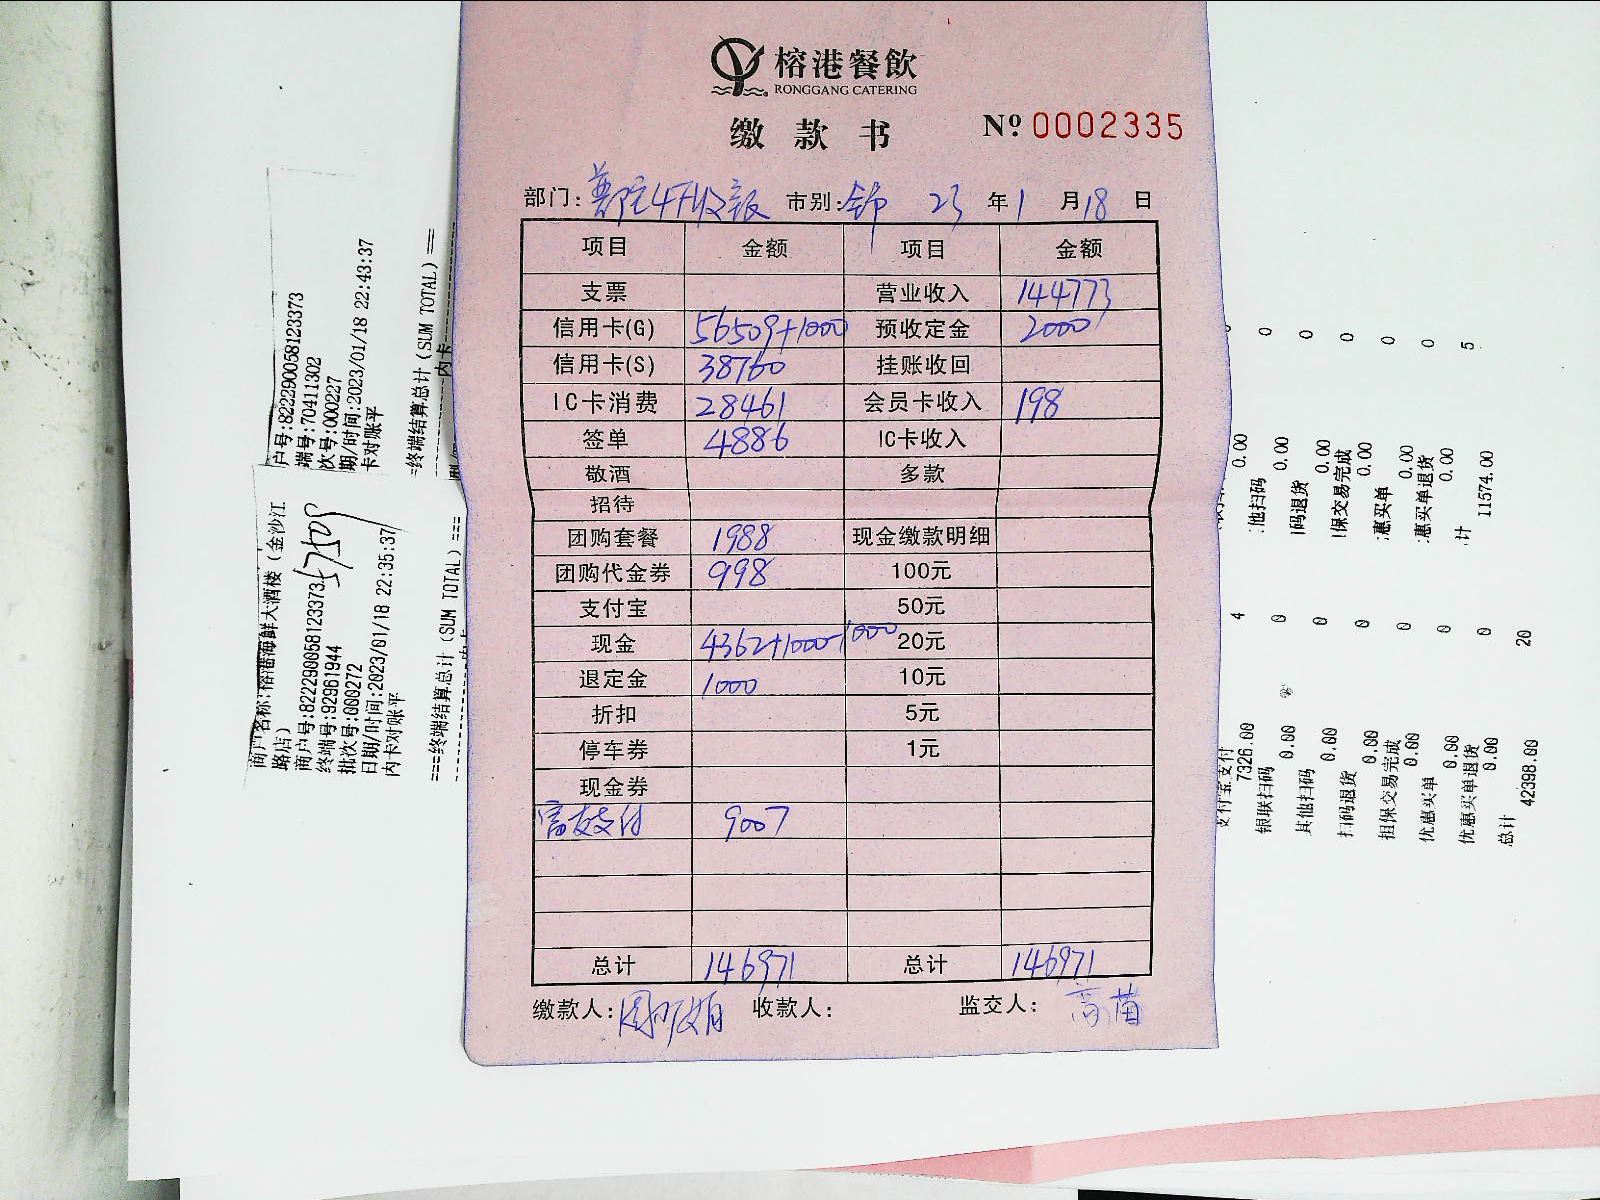 榕港餐飲
RONGGANG CATERING
缴款书 № 0002335
部门: 市别: 23 年 1 月 18 日
项目 金额 项目 金额
支票 营业收入 144773
信用卡(G) 56509+1000 预收定金 2000
信用卡(S) 38760 挂账收回
IC卡消费 28461 会员卡收入 198
签单 4886 IC卡收入
敬酒 多款
招待
团购套餐 1988 现金缴款明细
团购代金券 998 100元
支付宝 50元
现金 4362+1000-1000 20元
退定金 1000 10元
折扣 5元
停车券 1元
现金券
富友支付 9007
总计 146971 总计 146971
缴款人: 收款人: 监交人: 高苗
户号:822290058123373
端号:70411302
次号:000227
期/时间:2023/01/18 22:43:37
卡对账平
=终端结算总计(SUM TOTAL)==
内卡
商户名称:榕港海鲜大酒楼(金沙江
路店)
商户号:822290058123373
终端号:92961944
批次号:000272
日期/时间:2023/01/18 22:35:37
内卡对账平
===终端结算总计(SUM TOTAL)===
0.00
他扫码 0
0.00
码退货 0
0.00
保交易完成 0
0.00
惠买单 0
0.00
惠买单退货 0
0.00
计 5
11574.00
支付宝支付 4
7326.00
银联扫码 0
0.00
其他扫码 0
0.00
扫码退货 0
0.00
担保交易完成 0
0.00
优惠买单 0
0.00
优惠买单退货 0
0.00
总计 20
42398.00